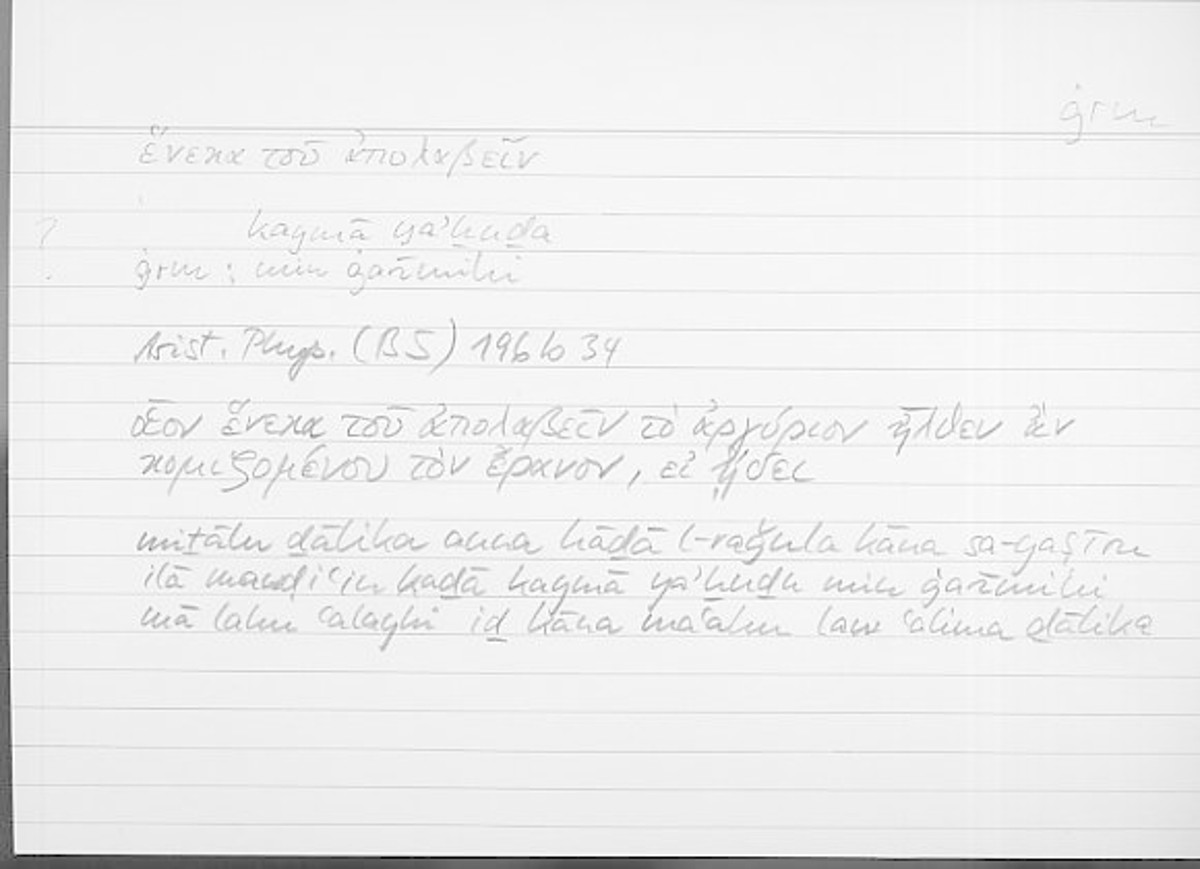 ġrm
ἕνεκα τοῦ ἀπολαβεῖν
? kaymā yaʾḫuḏa
ġrm : min ġarīmihi
Arist. Phys. (BS) 196 b 34
οἷον ἕνεκα τοῦ ἀπολαβεῖν τὸ ἀργύριον ἦλθεν ἂν
κομιζομένου τὸν ἔρανον, εἰ ᾔδει
miṯālu ḏālika anna hāḏā l-raǧula kāna sa-yaṣīru
ilā mawḍiʿin kaḏā kaymā yaʾḫuḏu min ġarīmihi
mā lahu ʿalayhi iḏ kāna maʿahu law ʿalima ḏālika